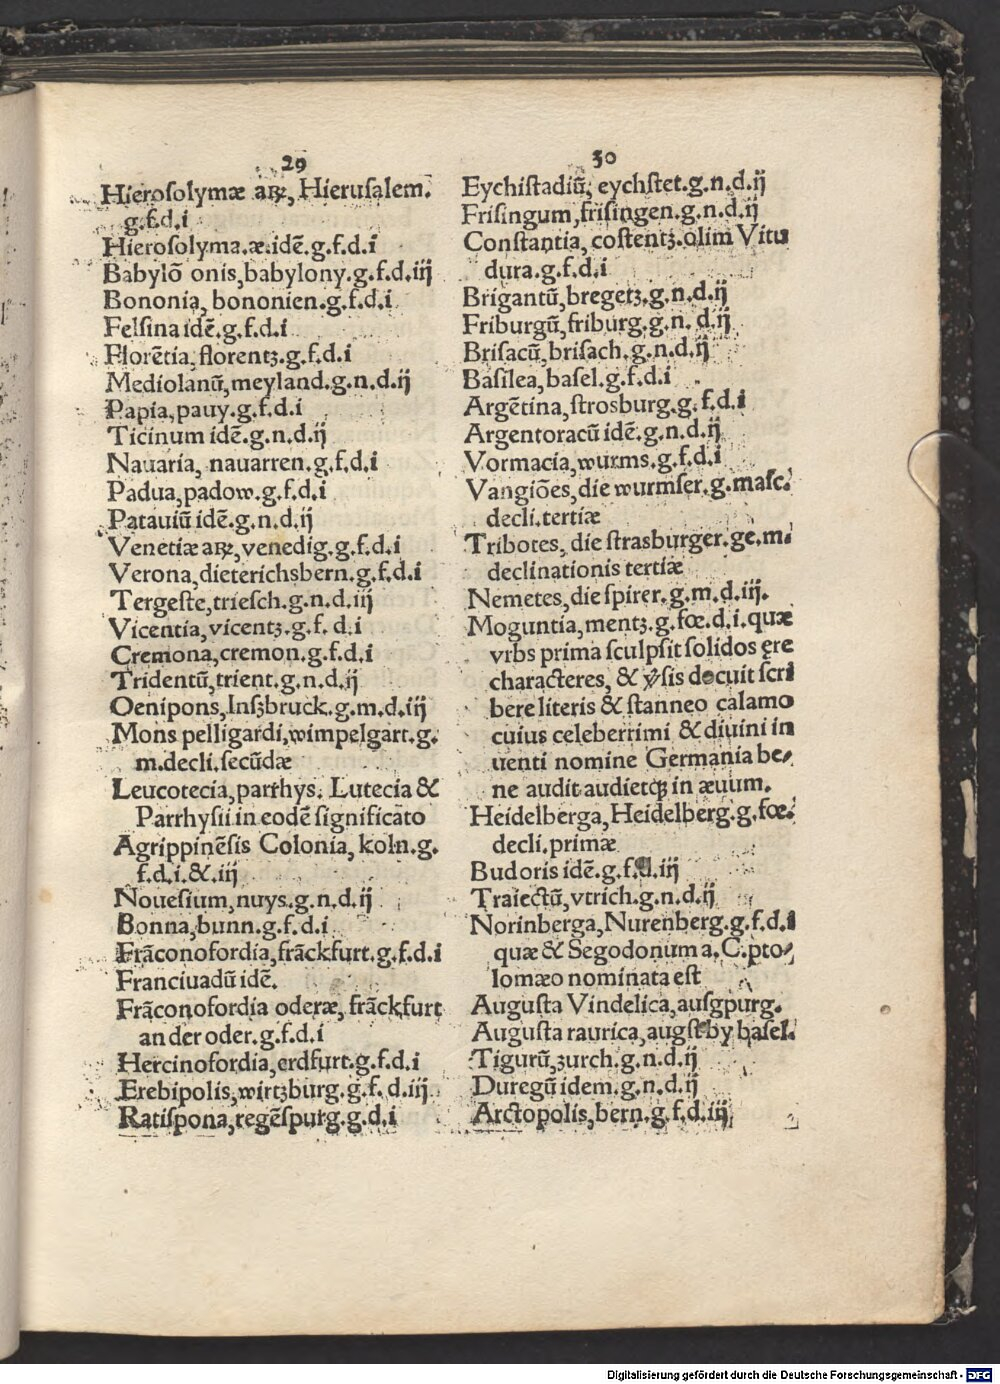 29
Hieroſolymæ aꝝ, Hieruſalem.
g.f.d.i
Hieroſolyma.æ.idē.g.f.d.i
Babylō onis, babylony.g.f.d.iij
Bononia, bononien.g.f.d.i
Felſina idē.g.f.d.i
Florētia, florentꝫ.g.f.d.i
Mediolanū, meyland.g.n.d.ij
Papia, pauy.g.f.d.i
Ticinum idē.g.n.d.ij
Nauaria, nauarren.g.f.d.i
Padua, padow.g.f.d.i
Patauiū idē.g.n.d.ij
Venetiæ aꝝ, venedig.g.f.d.i
Verona, dieterichsbern.g.f.d.i
Tergeſte, trieſch.g.n.d.iij
Vicentia, vicentꝫ.g.f.d.i
Cremona, cremon.g.f.d.i
Tridentū, trient.g.n.d.ij
Oenipons, Inſꝫbruck.g.m.d.iij
Mons pelligardi, wimpelgart.g.
m.decli.ſecūdæ
Leucotecia, parrhys. Lutecia &
Parrhysii in eodē ſignificato
Agrippinēſis Colonia, koln.g.
f.d.i.& .iij
Noueſium, nuys.g.n.d.ij
Bonna, bunn.g.f.d.i
Frāconofordia, frāckfurt.g.f.d.i
Franciuadū idē.
Frāconofordia oderæ, frāckfurt
an der oder.g.f.d.i
Hercinofordia, erdfurt.g.f.d.i
Erebipolis, wirtꝫburg.g.f.d.iij
Ratiſpona, regēſpurg.g.d.i
30
Eychiſtadiū, eychſtet.g.n.d.ij
Friſingum, friſingen.g.n.d.ij
Conſtantia, coſtentꝫ.olim Vitu
dura.g.f.d.i
Brigantū, bregetꝫ.g.n.d.ij
Friburgū, friburg.g.n.d.ij
Briſacū, briſach.g.n.d.ij
Baſilea, baſel.g.f.d.i
Argētina, ſtrosburg.g.f.d.i
Argentoracū idē.g.n.d.ij
Vormacia, wurms.g.f.d.i
Vangiōes, die wurmſer.g.maſc.
decli.tertiæ
Tribotes, die ſtrasburger.ge.m.
declinationis tertiæ
Nemetes, die ſpirer.g.m.d.iij.
Moguntia, mentꝫ.g.fœ.d.i.quæ
vrbs prima ſculpſit ſolidos ęre
characteres, & ꝟſis docuit ſcri
bere literis & ſtanneo calamo
cuius celeberrimi & diuini in
uenti nomine Germania be⸗
ne audit audietqꝫ in æuum.
Heidelberga, Heidelberg.g.fœ.
decli.primæ
Budoris idē.g.f.d.iij
Traiectū, vtrich.g.n.d.ij
Norinberga, Nurenberg.g.f.d.i
quæ & Segodonum a. C. pto⸗
lomæo nominata eſt
Auguſta Vindelica, auſgpurg.
Auguſta raurica, augſt by baſel.
Tigurū, zurch.g.n.d.ij
Duregū idem.g.n.d.ij
Arctopolis, bern.g.f.d.iij
Digitalisierung gefördert durch die Deutsche Forschungsgemeinschaft - DFG